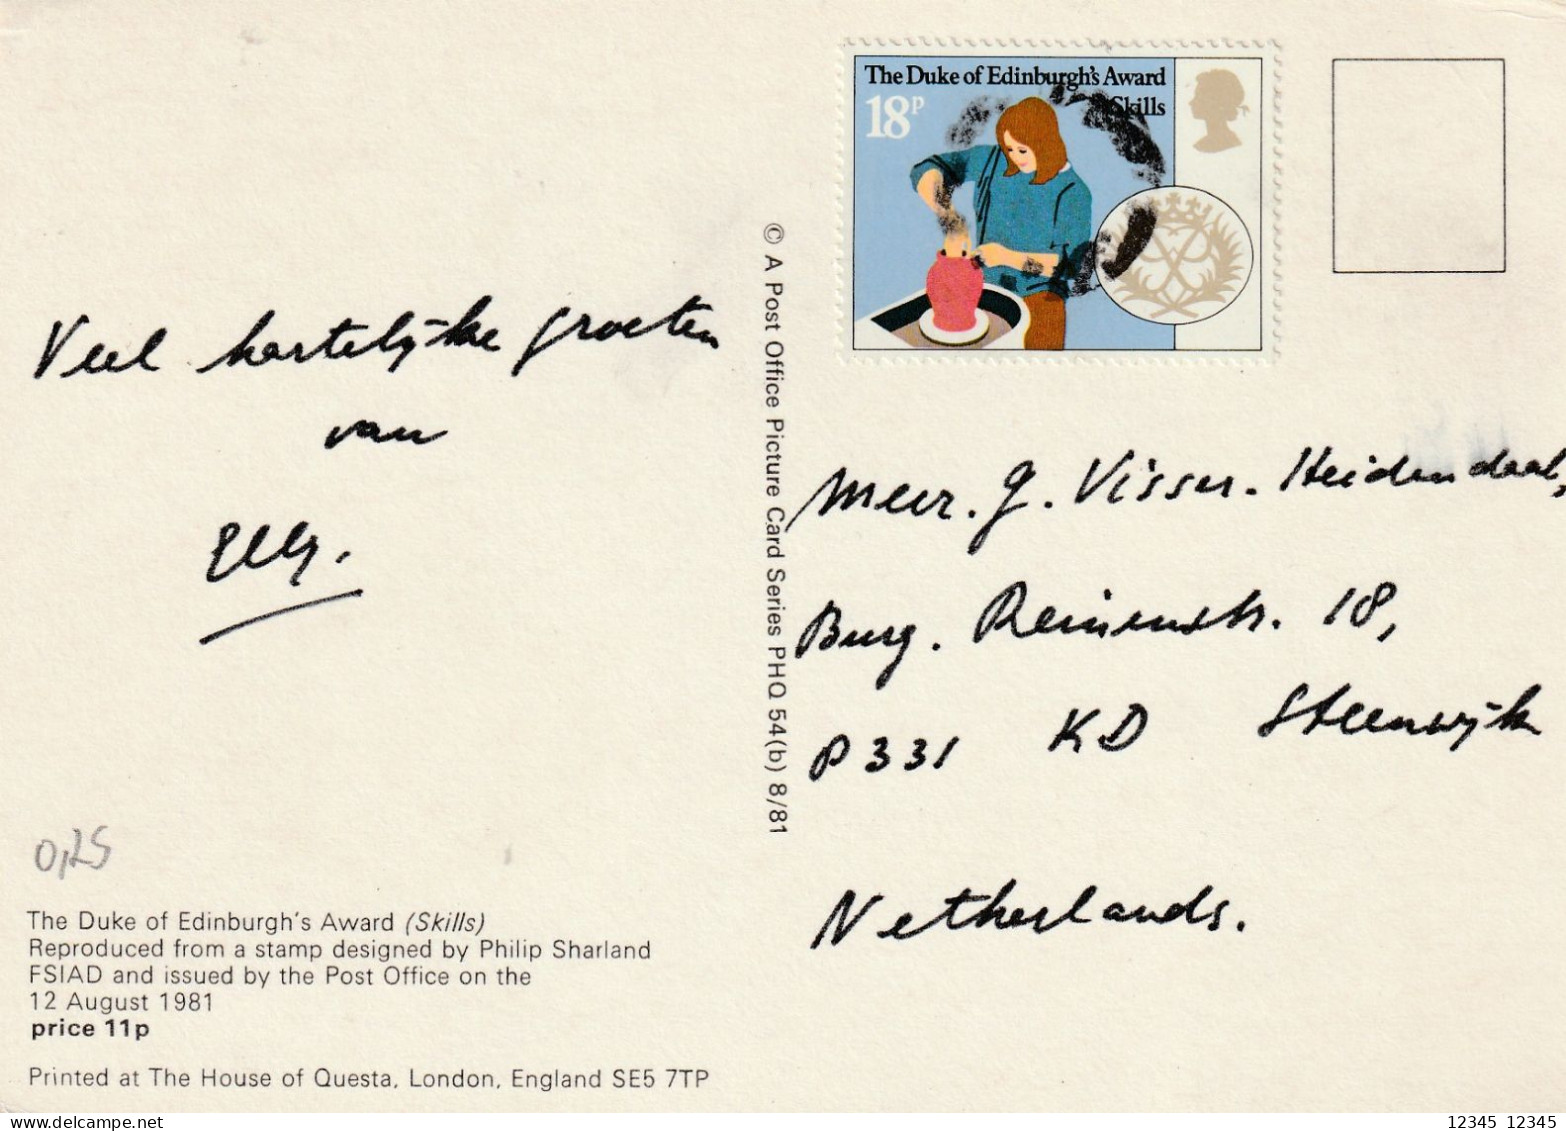 The Duke of Edinburgh's Award
Skills
18P
Veel hartelijke groeten
van
Elly.
© A Post Office Picture Card Series PHQ 54(b) 8/81
Mevr. J. Visser-Heidendaal,
Burg. 18,
P 331 KD Steenwijk
Netherlands.
0,25
The Duke of Edinburgh's Award (Skills)
Reproduced from a stamp designed by Philip Sharland
FSIAD and issued by the Post Office on the
12 August 1981
price 11p
Printed at The House of Questa, London, England SE5 7TP
12345 12345